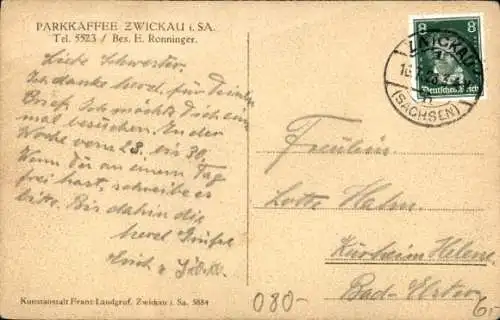 PARKKAFFEE ZWICKAU i. SA.
Tel. 5523 / Bes. E. Ronninger.
Liebe Schwester,
Ich danke herzl. für Deinen
Brief. Ich möchte Dich ein
mal besuchen. In der
Woche vom 23. bis 30.
Wenn Du an einem Tag
frei hast, schreibe es
bitte. Bis dahin die
herzl Grüße
Erich
Kunstanstalt Franz Landgraf, Zwickau i. Sa. 5884
8 8
Deutsches Reich
ZWICKAU
(SACHSEN)
Fräulein
Lotte Hahn
Kurheim Helene
Bad-Elster
080-